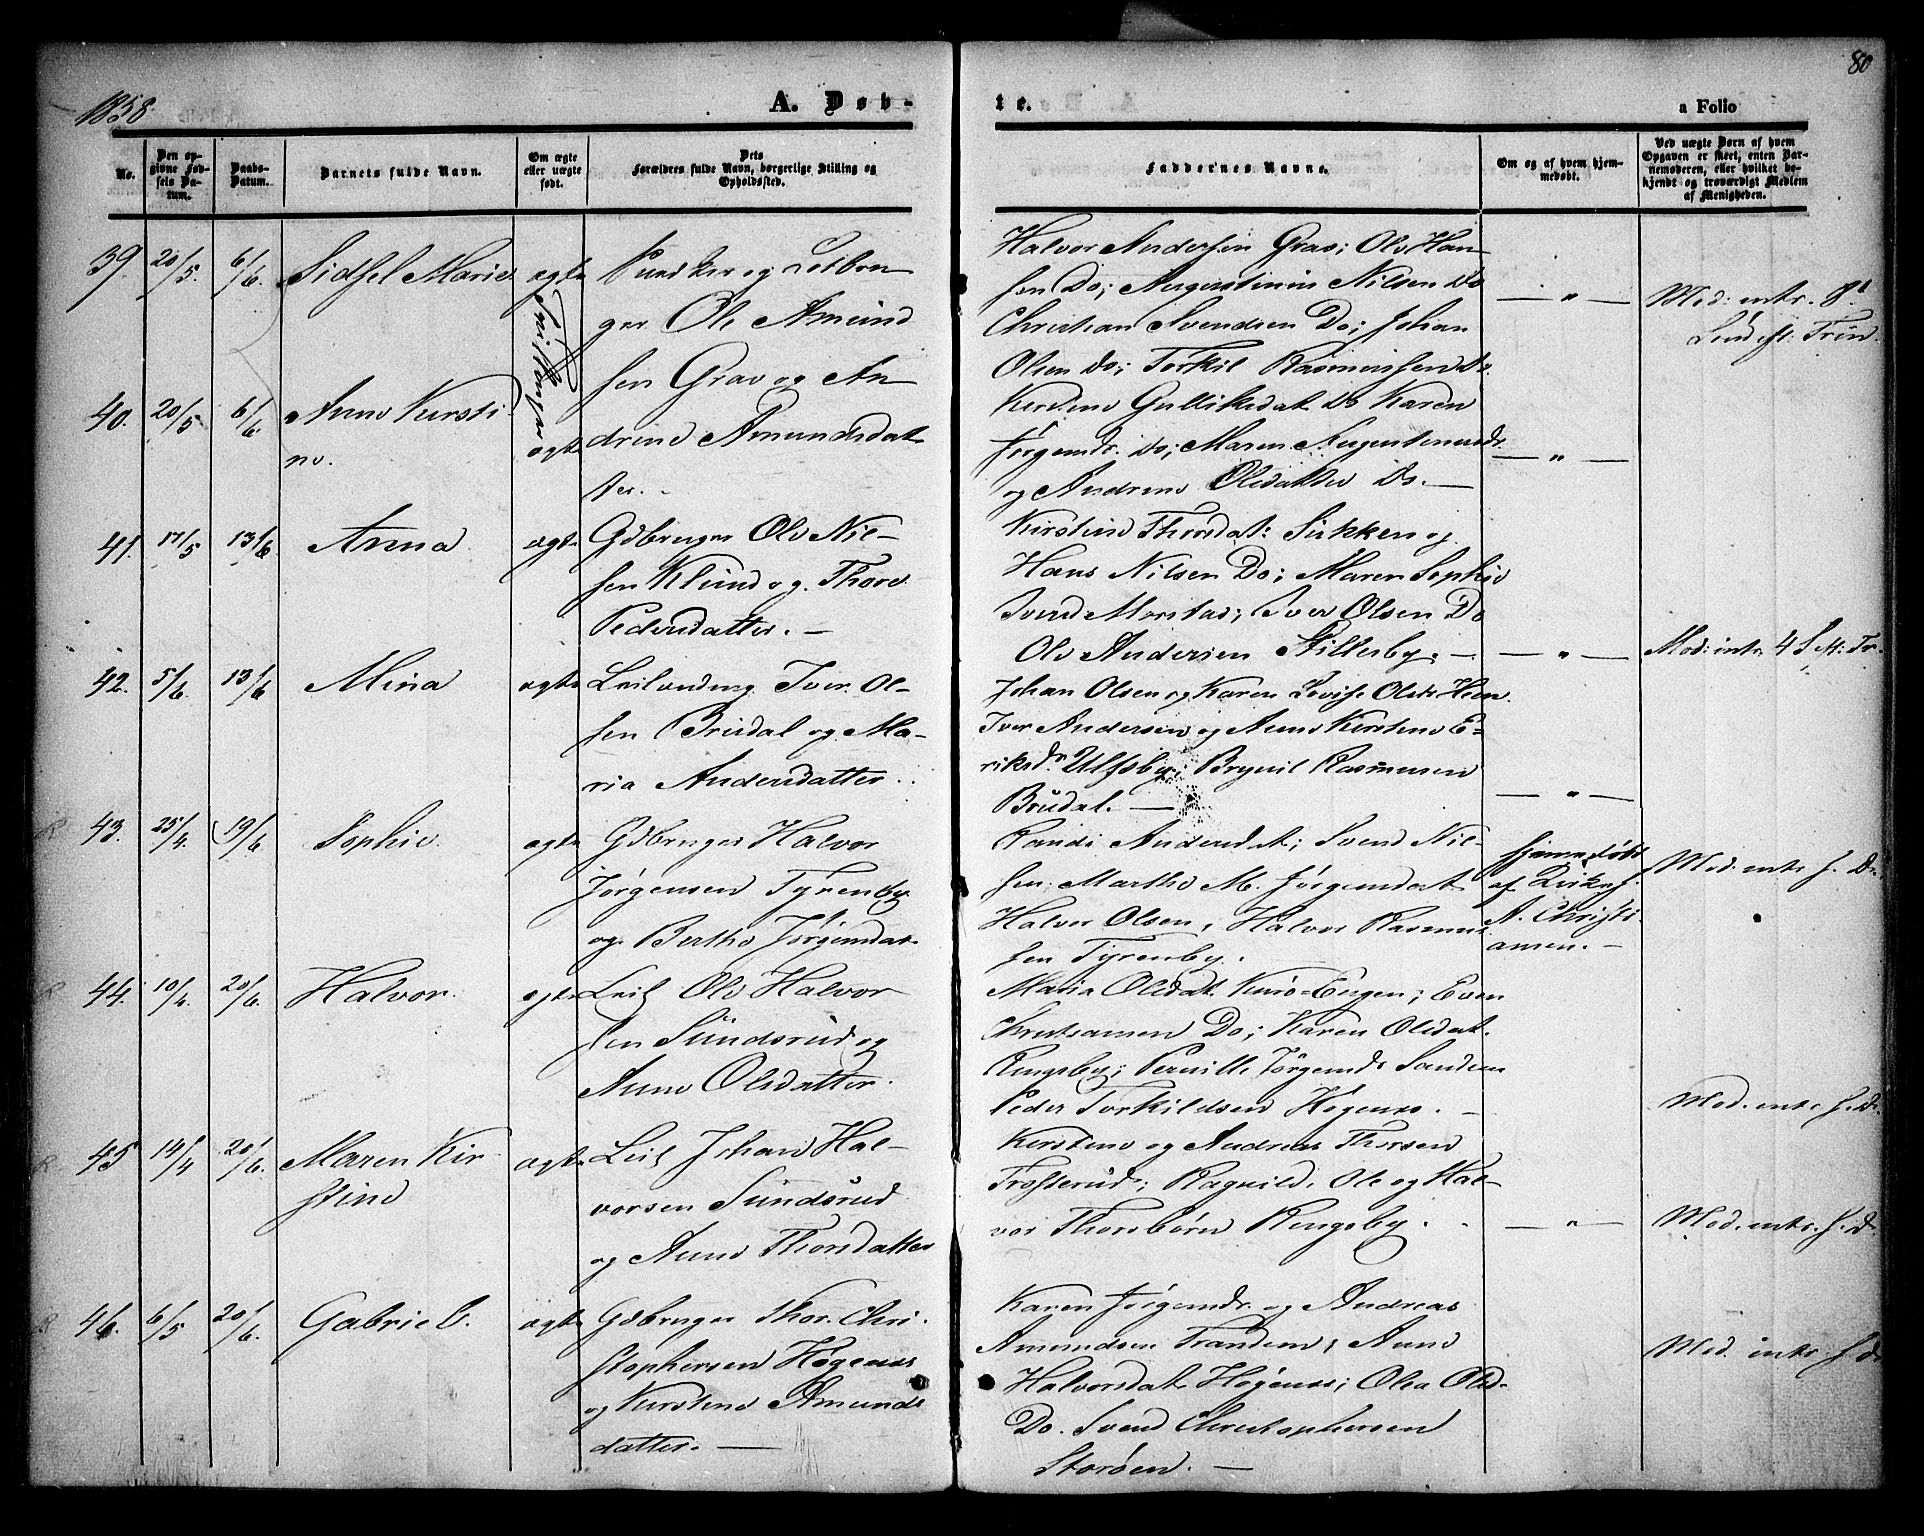 1858.
A. Døb-
te.
a Folio
80
No.
Den opgivne Fødsels Datum.
Daabs-Datum.
Barnets fulde Navn.
Om ægte eller uægte født.
Dets Forældres fulde Navn, borgerlige Stilling og Opholdssted.
Faddernes Navne.
Om og af hvem hjemmedøbt.
Ved uægte Børn af hvem Opgaven er skeet, enten Barnemoderen, eller hvilket bekjendt og troværdigt Medlem af Menigheden.
39. 20/5. 6/6. Sidsel Marie ægte
Tvillinger
40. 20/5 6/6. Anne Kirsti-
ne. ægte
ger Ole Amund
sen Grav og An-
drine Amundsdat
ter. -
Halvor Andersen Grav; Ole Han-
sen Do; Augustinius Nilsen Do
Christian Svendsen Do; Johan
Olsen Do; Torkil Rasmussen Do.
Gulliksdat Do Karen
Jørgensdr. Do; Maren
og Andrine Olsdatter Do. -
— " —
— " —
41. 17/5 13/6 Anna ægte
Gdbruger Ole Niel-
sen Klund og Thore
Pedersdatter. —
Kirstine Thorsdat: Sukken og
Hans Nilsen Do; Maren Sophie
Iversd Morstad; Iver Olsen Do
Ole Andersen Killerby. —
— " —
42. 5/6. 13/6 Mina ægte
Leilending Iver Ol-
sen Brudal og Ma-
ria Andersdatter.
Johan Olsen og Karen Lovise Olsdr Heen
Iver Andersen og Anne Kirstine E-
riksdr Ulfsby; Brynil Rasmussen
Brudal. —
— " —
43. 25/4. 19/6. Sophie. ægte
Gdbruger Halvor
Jørgensen Tyrenby
og Berthe Jørgensdat.
Randi Andersdat; Svend Nil-
sen; Marthe M. Jørgensdat
Halvor Olsen, Halvor Rasmus
sen Tyrenby.
hjemmedøbt
af Kirkes.
A. Christi-
ansen. -
44. 10/4. 20/6. Halvor. ægte
Leil. Ole Halvor
sen Sundsrud og
Anne Olsdatter.
Maria Olsdat. Engen; Even
Christiansen Do; Karen Olsdat.
Ringsby; Pernille Jørgensdr Sandem
Peder Torkildsen Høgenes. -
45 14/4 20/6. Maren Kir-
stine ægte
Leil. Johan Hal-
vorsen Sundsrud
og Anne Thorsdatter
Kirstine og Andreas Thorsen
Trosterud; Ragnild, Ole og Hal-
vor Thorsbørn Ringsby.
— " —
46. 6/5 20/6. Gabriel. ægte
Gdbruger Thor Chri-
stophersen Høgenes
og Kirstine Amunds
datter. —
Karen Jørgensdr. og Andreas
Amundsen Trandem; Anne
Halvorsdat Høgenes; Olea Olsd.
Do. Svend Christophersen
Storøen. —